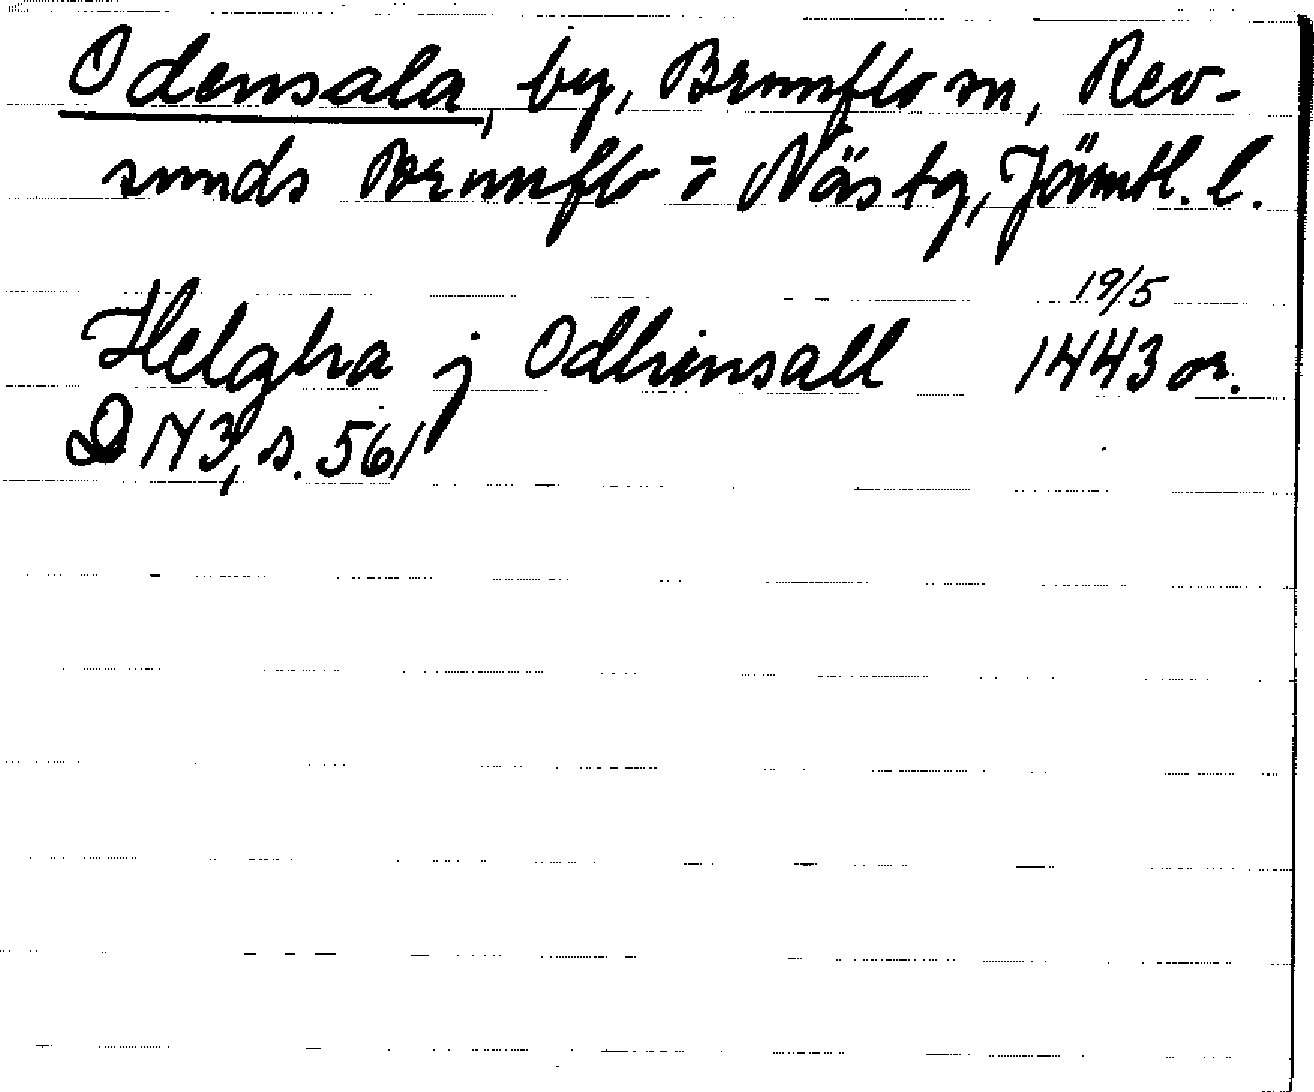 Odensala, by, Brunflo sn, Rev-
sunds Brunflo o Näs tg, Jämtl. l.
19/5
Helgha j Odhinsall 1443 or.
DN3, s. 561